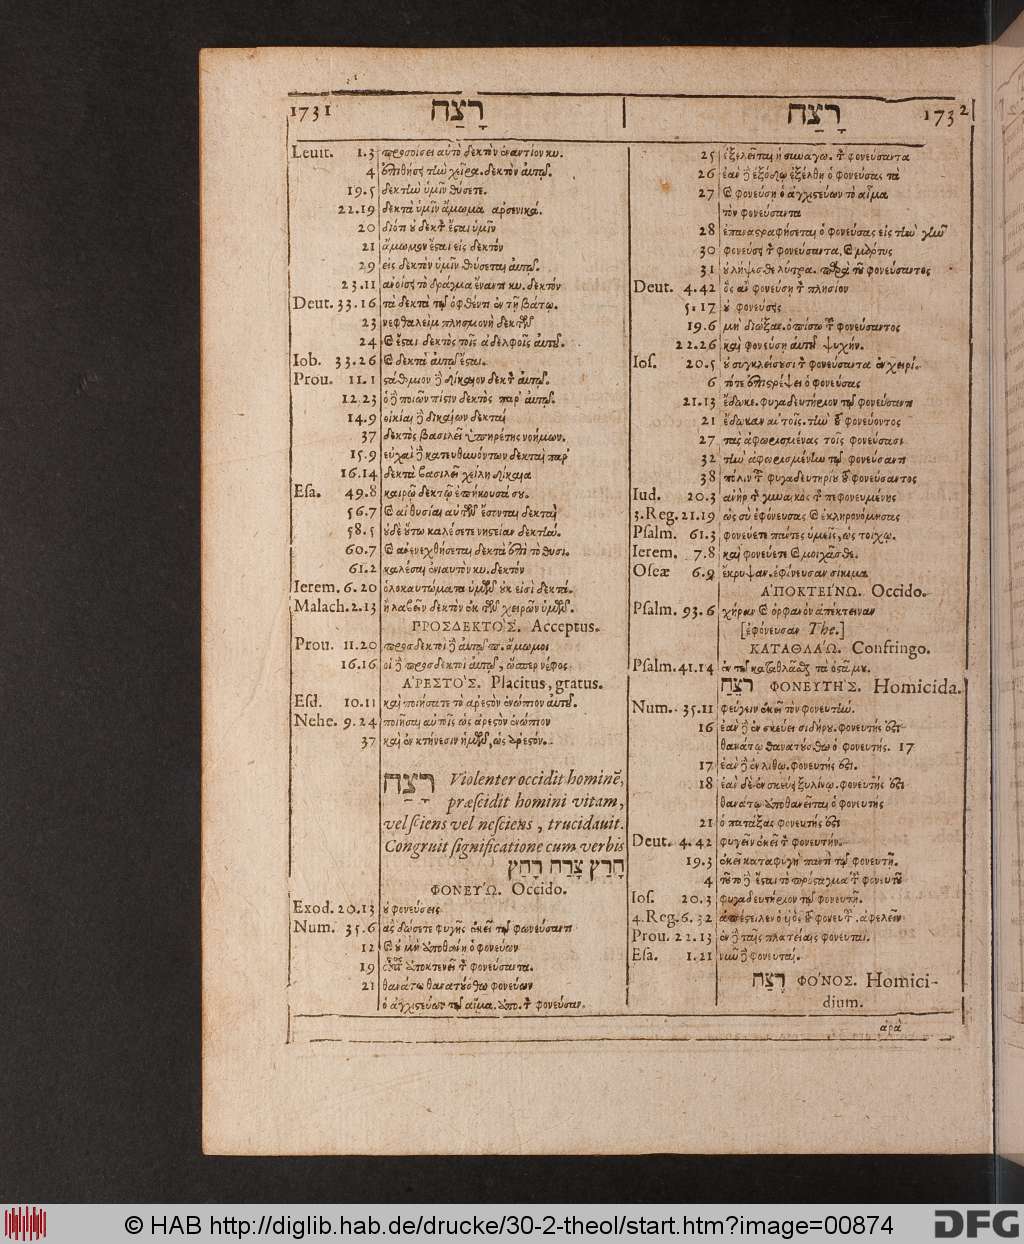 1731 רָצַח
Leuit. 1.3 προσοίσει αὐτὸ δεκτὸν ἐναντίον κυ.
4 ἐπιθήσει τὴν χεῖρα. δεκτὸν αὐτῷ.
19.5 δεκτὴν ὑμῖν θύσετε.
22.19 δεκτὰ ὑμῖν ἄμωμα ἀρσενικά.
20 διότι ὐ δεκτὸν ἔσαι ὑμῖν
21 ἄμωμον ἔσαι εἰς δεκτόν
29 εἰς δεκτὸν ὑμῖν θύσεται αὐτῷ.
23.11 ἀνοίσει τὸ δράγμα ἔναντι κυ. δεκτόν
Deut. 33.16 τὰ δεκτὰ τῷ ὀφθέντι ἐν τῇ βάτῳ.
23 νεφθαλεὶμ πλησμονὴ δεκτῶν
24 καὶ ἔσαι δεκτὸς τοῖς ἀδελφοῖς αὐτῦ.
Iob. 33.26 καὶ δεκτὰ αὐτῷ ἔσαι.
Prou. 11.1 στάθμιον δὲ δίκαιον δεκτὸν αὐτῷ.
12.23 ὁ δὲ ποιῶν πίστιν δεκτὸς παρ᾽ αὐτῷ.
14.9 οἰκίαι δὲ δικαίων δεκταί
37 δεκτὸς βασιλεῖ ὑπηρέτης νοήμων.
15.9 εὐχαὶ δὲ κατευθυνόντων δεκταὶ παρ᾽
16.14 δεκτὰ βασιλεῖ χείλη δίκαια
Esa. 49.8 καιρῷ δεκτῷ ἐπήκουσά συ.
56.7 καὶ αἱ θυσίαι αὐτῶν ἔσονται δεκταὶ
58.5 ὐδὲ ὕτω καλέσετε νηστείαν δεκτήν.
60.7 καὶ ἀνενεχθήσεται δεκτὰ ἐπὶ τὸ θυσι.
61.2 καλέσαι ἐνιαυτὸν κυ. δεκτὸν
Ierem. 6.20 ὁλοκαυτώματα ὑμῶν ὐκ εἰσὶ δεκτά.
Malach. 2.13 ἢ λαβεῖν δεκτὸν ἐκ τῶν χειρῶν ὑμῶν.
ΠΡΟΣΔΕΚΤΟ'Σ. Acceptus.
Prou. 11.20 προσδεκτοὶ δὲ αὐτῷ π. ἄμωμοι
16.16 οἱ δὲ προσδεκτοὶ αὐτῷ, ὥσπερ νέφος
ἈΡΕΣΤΟ'Σ. Placitus, gratus.
Esd. 10.11 καὶ ποιήσατε τὸ ἀρεστὸν ἐνώπιον αὐτῦ.
Nehe. 9.24 ποιῆσαι αὐτοῖς ὡς ἀρεστὸν ἐνώπιον
37 καὶ ἐν κτήνεσιν ἡμῶν, ὡς ἀρεστόν.
רָצַח Violenter occidit hominē,
præscidit homini vitam,
vel sciens vel nesciens, trucidauit.
Congruit significatione cum verbis
חָרַץ צָרַח רָחַץ
ΦΟΝΕΥΏ. Occido.
Exod. 20.13 ὐ φονεύσεις
Num. 35.6 ἃς δώσετε φυγεῖν ἐκεῖ τῷ φονεύσαντι
12 καὶ ὐ μὴ ἀποθάνῃ ὁ φονεύων
19 οὗτος ἀποκτενεῖ τὸν φονεύσαντα.
21 θανάτῳ θανατύσθω ὁ φονεύων
ὁ ἀγχιστεύων τὸ αἷμα. ἀπο. τὸν φονεύσαν.
רָצַח 1732
25 ἐξελεῖται ἡ συναγω. τὸν φονεύσαντα
26 ἐὰν δὲ ἐξόδῳ ἐξέλθῃ ὁ φονεύσας τὰ
27 καὶ φονεύσῃ ὁ ἀγχιστεύων τὸ αἷμα
τὸν φονεύσαντα
28 ἐπαναστραφήσεται ὁ φονεύσας εἰς τὴν γῆν
30 φονεύσει τὸν φονεύσαντα, καὶ μάρτυς
31 ὐ λήψεσθε λύτρα. παρὰ τῦ φονεύσαντος
Deut. 4.42 ὃς ἂν φονεύσῃ τὸν πλησίον
5.17 ὐ φονεύσεις
19.6 μὴ διώξας. ὀπίσω τῦ φονεύσαντος
22.26 καὶ φονεύσῃ αὐτῦ ψυχήν.
Ios. 20.5 ὐ συγκλείσυσι τὸν φονεύσαντα ἐν χειρί.
6 τότε ἐπιστρέψει ὁ φονεύσας
21.13 ἔδωκε. φυγαδευτήριον τῷ φονεύσαντι
21 ἔδωκαν αὐτοῖς. τὴν τῦ φονεύοντος
27 τὰς ἀφωρισμένας τοῖς φονεύσασι
32 τὴν ἀφωρισμένην τῷ φονεύσαντι
38 πόλιν τῦ φυγαδευτηρίυ τῦ φονεύσαντος
Iud. 20.3 ἀνὴρ τῆς γυναικὸς τῆς πεφονευμένης
3.Reg. 21.19 ὡς σὺ ἐφόνευσας καὶ ἐκληρονόμησας
Psalm. 61.3 φονεύετε πάντες ὑμεῖς, ὡς τοίχῳ.
Ierem. 7.8 καὶ φονεύετε καὶ μοιχᾶσθε.
Oseæ 6.9 ἔκρυψαν. ἐφόνευσαν σίκιμα
ἈΠΟΚΤΕΊΝΩ. Occido.
Psalm. 93.6 χήραν καὶ ὀρφανὸν ἀπέκτειναν
[ἐφόνευσαν The.]
ΚΑΤΑΘΛΆΩ. Confringo.
Psalm. 41.14 ἐν τῷ καταθλᾶσαι τὰ ὀστᾶ μυ.
רֹצֵחַ ΦΟΝΕΥΤΗ'Σ. Homicida.
Num. 35.11 φεύγειν ἐκεῖ τὸν φονευτήν.
16 ἐὰν δὲ ἐν σκεύει σιδήρυ. φονευτής ἐστι
θανάτῳ θανατύσθω ὁ φονευτής. 17
17 ἐὰν δὲ ἐν λίθῳ. φονευτής ἐστι.
18 ἐὰν δὲ ἐν σκεύει ξυλίνῳ. φονευτής ἐστι
θανάτῳ ἀποθανεῖται ὁ φονευτής
21 ὁ πατάξας φονευτής ἐστι
Deut. 4.42 φυγεῖν ἐκεῖ τὸν φονευτήν.
19.3 ἐκεῖ καταφυγὴ παντὶ τῷ φονευτῇ.
4 τῦτο δὲ ἔσαι τὸ πρόσταγμα τῦ φονευτῦ
Ios. 20.3 φυγαδευτήριον τῷ φονευτῇ.
4.Reg. 6.32 ἀπέστειλεν ὁ υἱὸς τῦ φονευτῦ. ἀφελεῖν
Prou. 22.13 ἐν δὲ ταῖς πλατείαις φονευταί.
Esa. 1.21 νῦν δὲ φονευταί.
רֶצַח ΦΟ'ΝΟΣ. Homici-
dium.
ἀρὰ
© HAB http://diglib.hab.de/drucke/30-2-theol/start.htm?image=00874
DFG